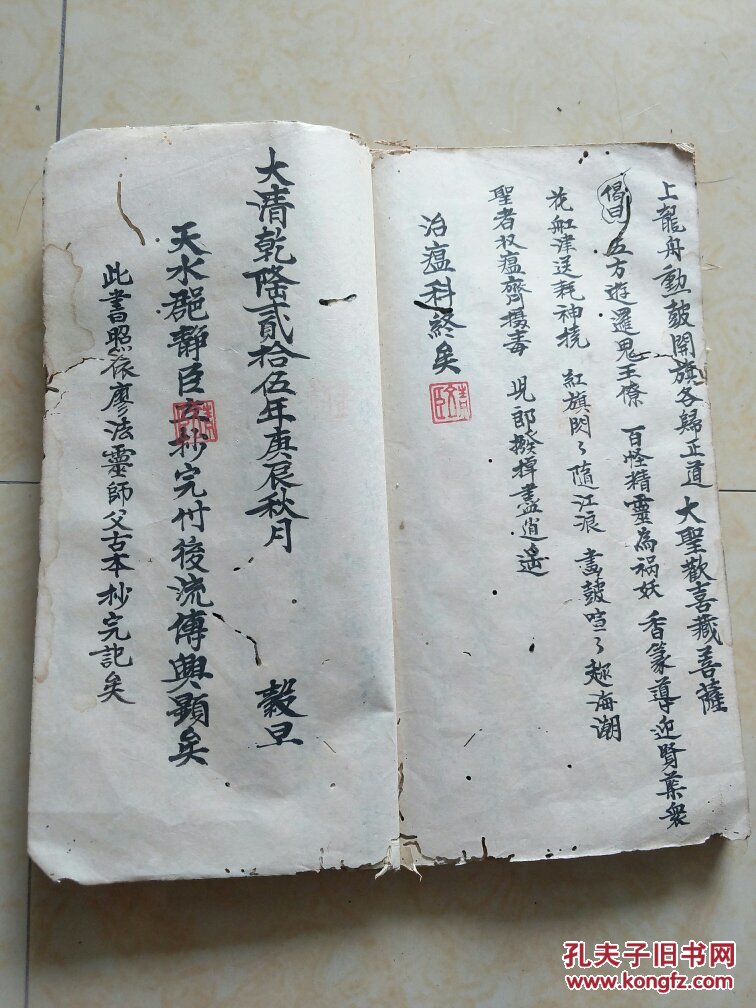 上龍舟勳皷開旗各歸正道 大聖歡喜藏菩薩
偈曰 五方遊邏鬼王僚 百怪精靈為禍妖 香篆導迎賢葉衆
花舡津送耗神橈 紅旗閃〻隨江浪 畫皷喧〻趂海潮
聖者收瘟齊摄毒 児郎撥棹盡逍遥
治瘟科終矣
大清乾隆貳拾伍年庚辰秋月 穀旦
天水郡靜臣立抄完付後流傳興顯矣
此書照依廖法靈師父古本抄完記矣
孔夫子旧书网
www.kongfz.com